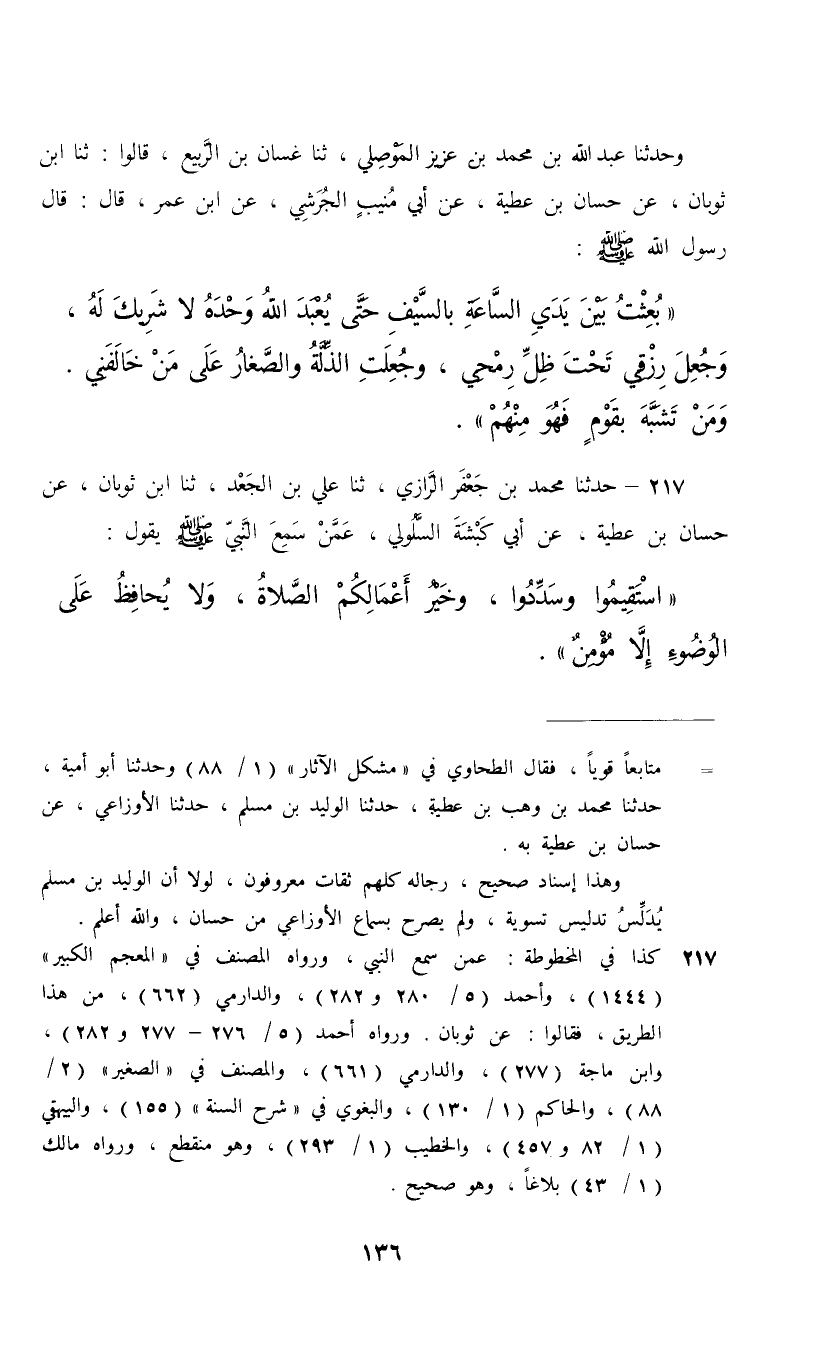 وحدثنا عبد الله بن محمد بن عزيز المَوْصِلي ، ثنا غسان بن الرَّبيع ، قالوا : ثنا ابن
ثوبان ، عن حسان بن عطية ، عن أبي مُنيبٍ الجُرَشي ، عن ابن عمر ، قال : قال
رسول الله ﷺ :
« بُعِثْتُ بَيْنَ يَدَي السَّاعَةِ بالسَّيْفِ حَتَّى يُعْبَدَ اللهُ وَحْدَهُ لا شَرِيكَ لَهُ ،
وَجُعِلَ رِزْقِي تَحْتَ ظِلِّ رِمْحِي ، وجُعِلَتِ الذِّلَّةُ والصَّغارُ عَلَى مَنْ خَالَفَنِي .
وَمَنْ تَشَبَّهَ بقَوْمٍ فَهُوَ مِنْهُمْ » .
٢١٧ – حدثنا محمد بن جَعْفَر الرَّازي ، ثنا علي بن الجَعْد ، ثنا ابن ثوبان ، عن
حسان بن عطية ، عن أبي كَبْشَةَ السَّلُولي ، عَمَّنْ سَمِعَ النَّبيّ ﷺ يقول :
« اسْتَقِيمُوا وسَدِّدُوا ، وخَيْرُ أَعْمَالِكُمْ الصَّلاةُ ، وَلا يُحافِظُ عَلَى
الوُضُوءِ إِلَّا مُؤْمِنٌ » .
= متابعاً قوياً ، فقال الطحاوي في « مشكل الآثار » ( ١ / ٨٨ ) وحدثنا أبو أمية ،
حدثنا محمد بن وهب بن عطية ، حدثنا الوليد بن مسلم ، حدثنا الأوزاعي ، عن
حسان بن عطية به .
وهذا إسناد صحيح ، رجاله كلهم ثقات معروفون ، لولا أن الوليد بن مسلم
يُدَلِّسُ تدليس تسوية ، ولم يصرح بسماع الأوزاعي من حسان ، والله أعلم .
٢١٧ كذا في المخطوطة : عمن سمع النبي ، ورواه المصنف في « المعجم الكبير »
( ١٤٤٤ ) ، وأحمد ( ٥ / ٢٨٠ و ٢٨٢ ) ، والدارمي ( ٦٦٢ ) ، من هذا
الطريق ، فقالوا : عن ثوبان . ورواه أحمد ( ٥ / ٢٧٦ – ٢٧٧ و ٢٨٢ ) ،
وابن ماجة ( ٢٧٧ ) ، والدارمي ( ٦٦١ ) ، والمصنف في « الصغير » ( ٢ /
٨٨ ) ، والحاكم ( ١ / ١٣٠ ) ، والبغوي في « شرح السنة » ( ١٥٥ ) ، والبيهقي
( ١ / ٨٢ و ٤٥٧ ) ، والخطيب ( ١ / ٢٩٣ ) ، وهو منقطع ، ورواه مالك
( ١ / ٤٣ ) بلاغاً ، وهو صحيح .
١٣٦